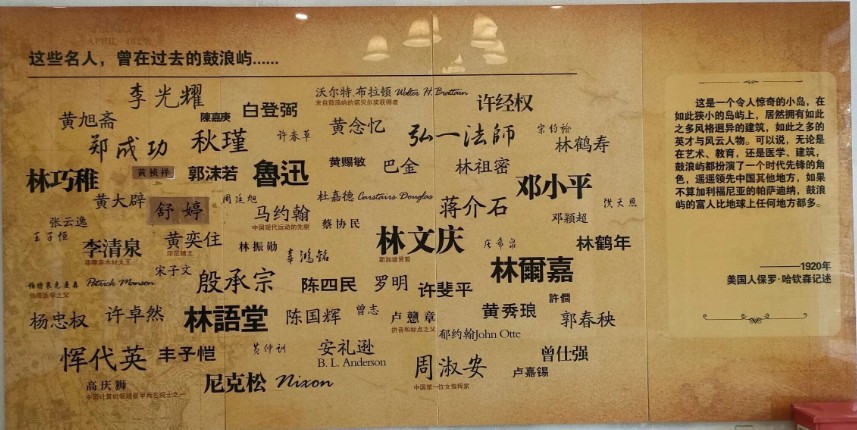 这些名人，曾在过去的鼓浪屿......
李光耀
沃尔特.布拉顿 Walter H. Brattain
来自鼓浪屿的诺贝尔奖获得者
许经权
黄旭斋
陈嘉庚
白登弼
郑成功
秋瑾
许春草
黄念忆
弘一法師
林鹤寿
林巧稚
黄祯祥
郭沫若
魯迅
黄赐敏
巴金
林祖密
邓小平
黄大辟
舒婷
周廷旭
马约翰
中国现代运动的先驱
杜嘉德 Carstairs Douglas
蒋介石
邓颖超
洪天恩
张云逸
王子恒
李清泉
黄奕住
林振勋
辜鸿铭
蔡协民
林文庆
林鹤年
宋子文
Patrick Manson
殷承宗
陈四民
罗明
许斐平
林爾嘉
許僩
杨忠权
许卓然
林語堂
陈国辉
曾志
卢戆章
拼音和标点之父
黄秀琅
郭春秧
郁约翰John Otte
恽代英
丰子恺
黄仲训
安礼逊
B. L. Anderson
周淑安
中国第一位女指挥家
曾仕强
卢嘉锡
高庆狮
尼克松 Nixon
这是一个令人惊奇的小岛，在
如此狭小的岛屿上，居然拥有如此
之多风格迥异的建筑，如此之多的
英才与风云人物。可以说，无论是
在艺术、教育，还是医学、建筑，
鼓浪屿都扮演了一个时代先锋的角
色，遥遥领先中国其他地方，如果
不算加利福尼亚的帕萨迪纳，鼓浪
屿的富人比地球上任何地方都多。
————1920年
美国人保罗·哈钦森记述